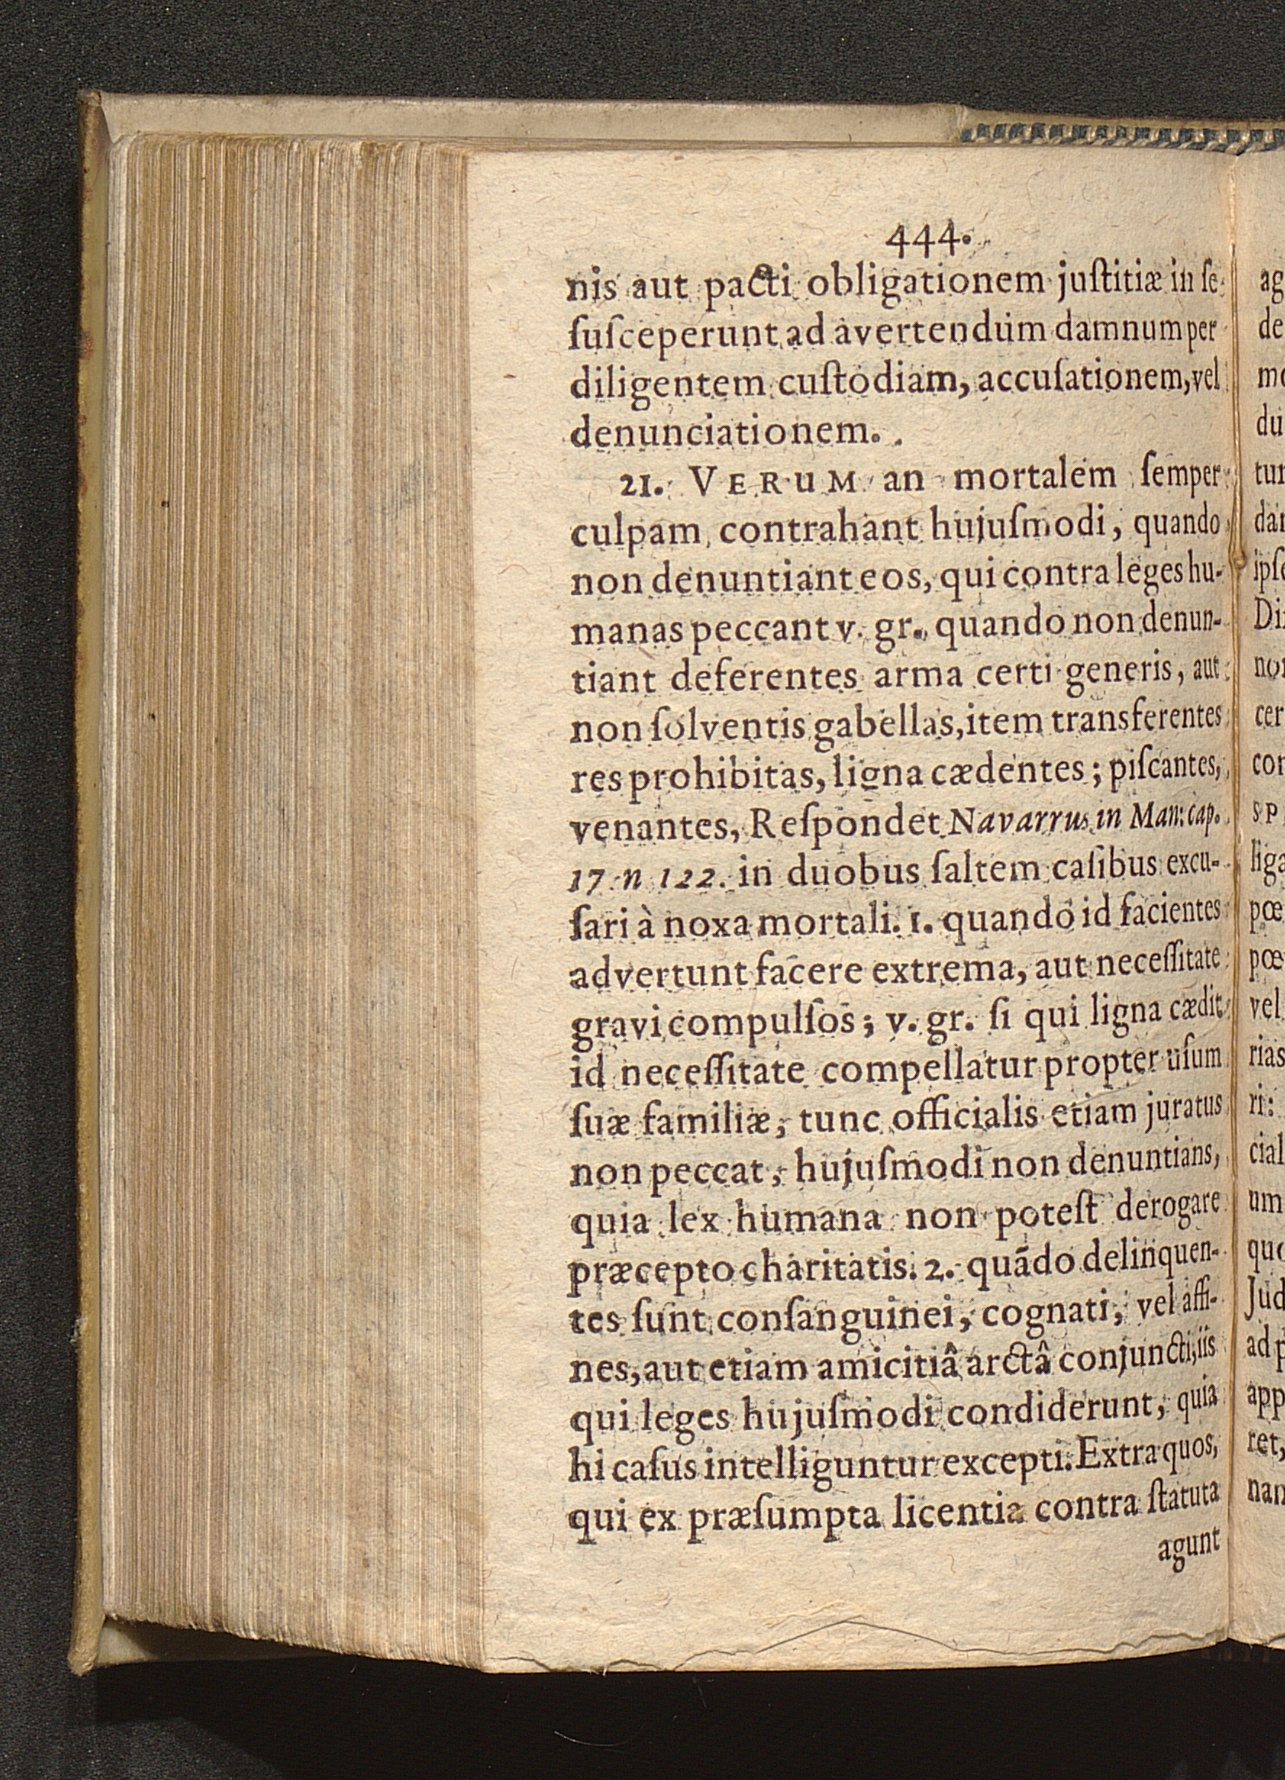 444.
nis aut pacti obligationem juſtitiæ in ſe
ſuſceperunt ad avertendum damnum per
diligentem cuſtodiam, accuſationem, vel
denunciationem.
21. VERUM an mortalem ſemper
culpam contrahant hujuſmodi, quando
non denuntiant eos, qui contra leges hu-
manas peccant v. gr. quando non denun-
tiant deferentes arma certi generis, aut
non ſolventis gabellas, item transferentes
res prohibitas, ligna cædentes; piſcantes,
venantes, Reſpondet Navarrus in Man: cap.
17. n 122. in duobus ſaltem caſibus excu-
ſari à noxa mortali. 1. quando id facientes
advertunt facere extrema, aut neceſſitate
gravi compulſos; v. gr. ſi qui ligna cædit
id neceſſitate compellatur propter uſum
ſuæ familiæ, tunc officialis etiam juratus
non peccat, hujuſmodi non denuntians,
quia lex humana non poteſt derogare
præcepto charitatis. 2. quādo delinquen-
tes ſunt conſanguinei, cognati, vel affi-
nes, aut etiam amicitiâ arctâ conjuncti, iis
qui leges hujuſmodi condiderunt, quia
hi caſus intelliguntur excepti. Extra quos,
qui ex præſumpta licentia contra ſtatuta
agunt
ag
de
du
tur
cer
con
SP
liga
pœ
pœ
vel
rias
ri:
cial
um
Jud
ad p
app
ret,
nan